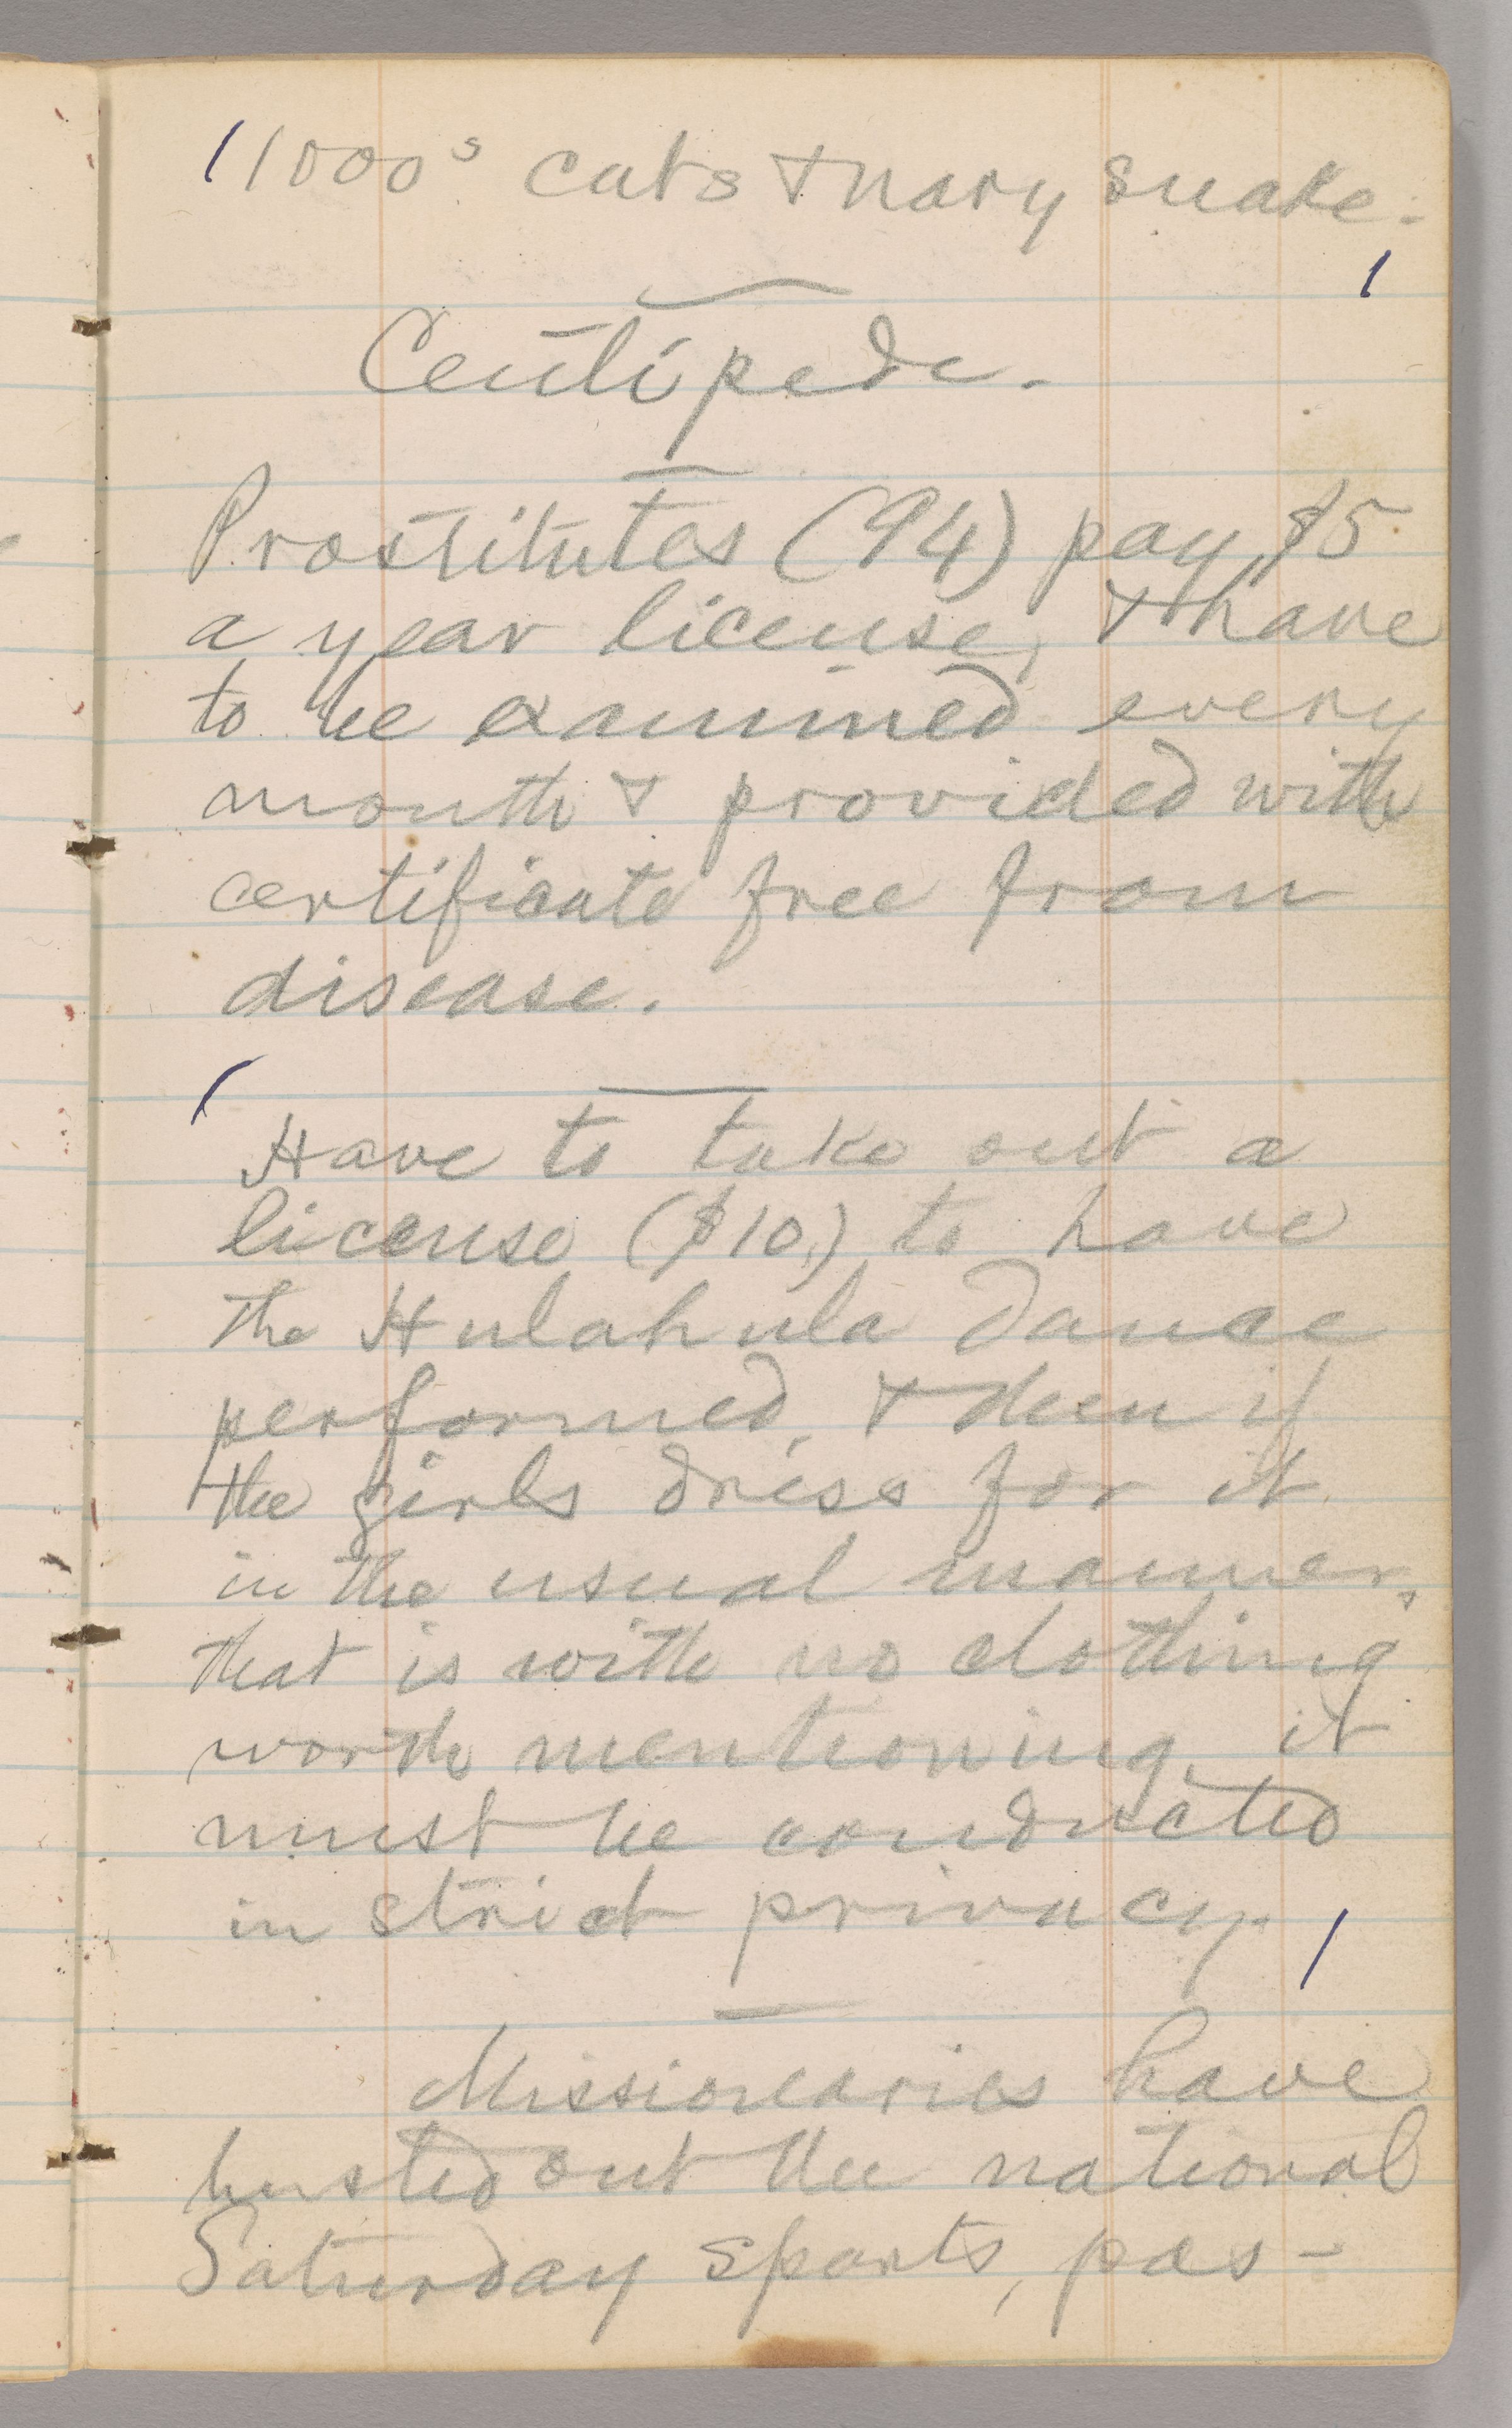 1000s cats & nary snake.
Centipede.
Prostitutes (94) pay $5
a year license, & have
to be examined every
month & provided with
certificate free from
disease.
Have to take out a
license ($10.) to have
the Hulahula dance
performed, & then if
the girls dress for it
in the usual manner,
that is with no clothing
worth mentioning, it
must be conducted
in strict privacy.
Missionearies have
busted out the national
Saturday sports, pas-